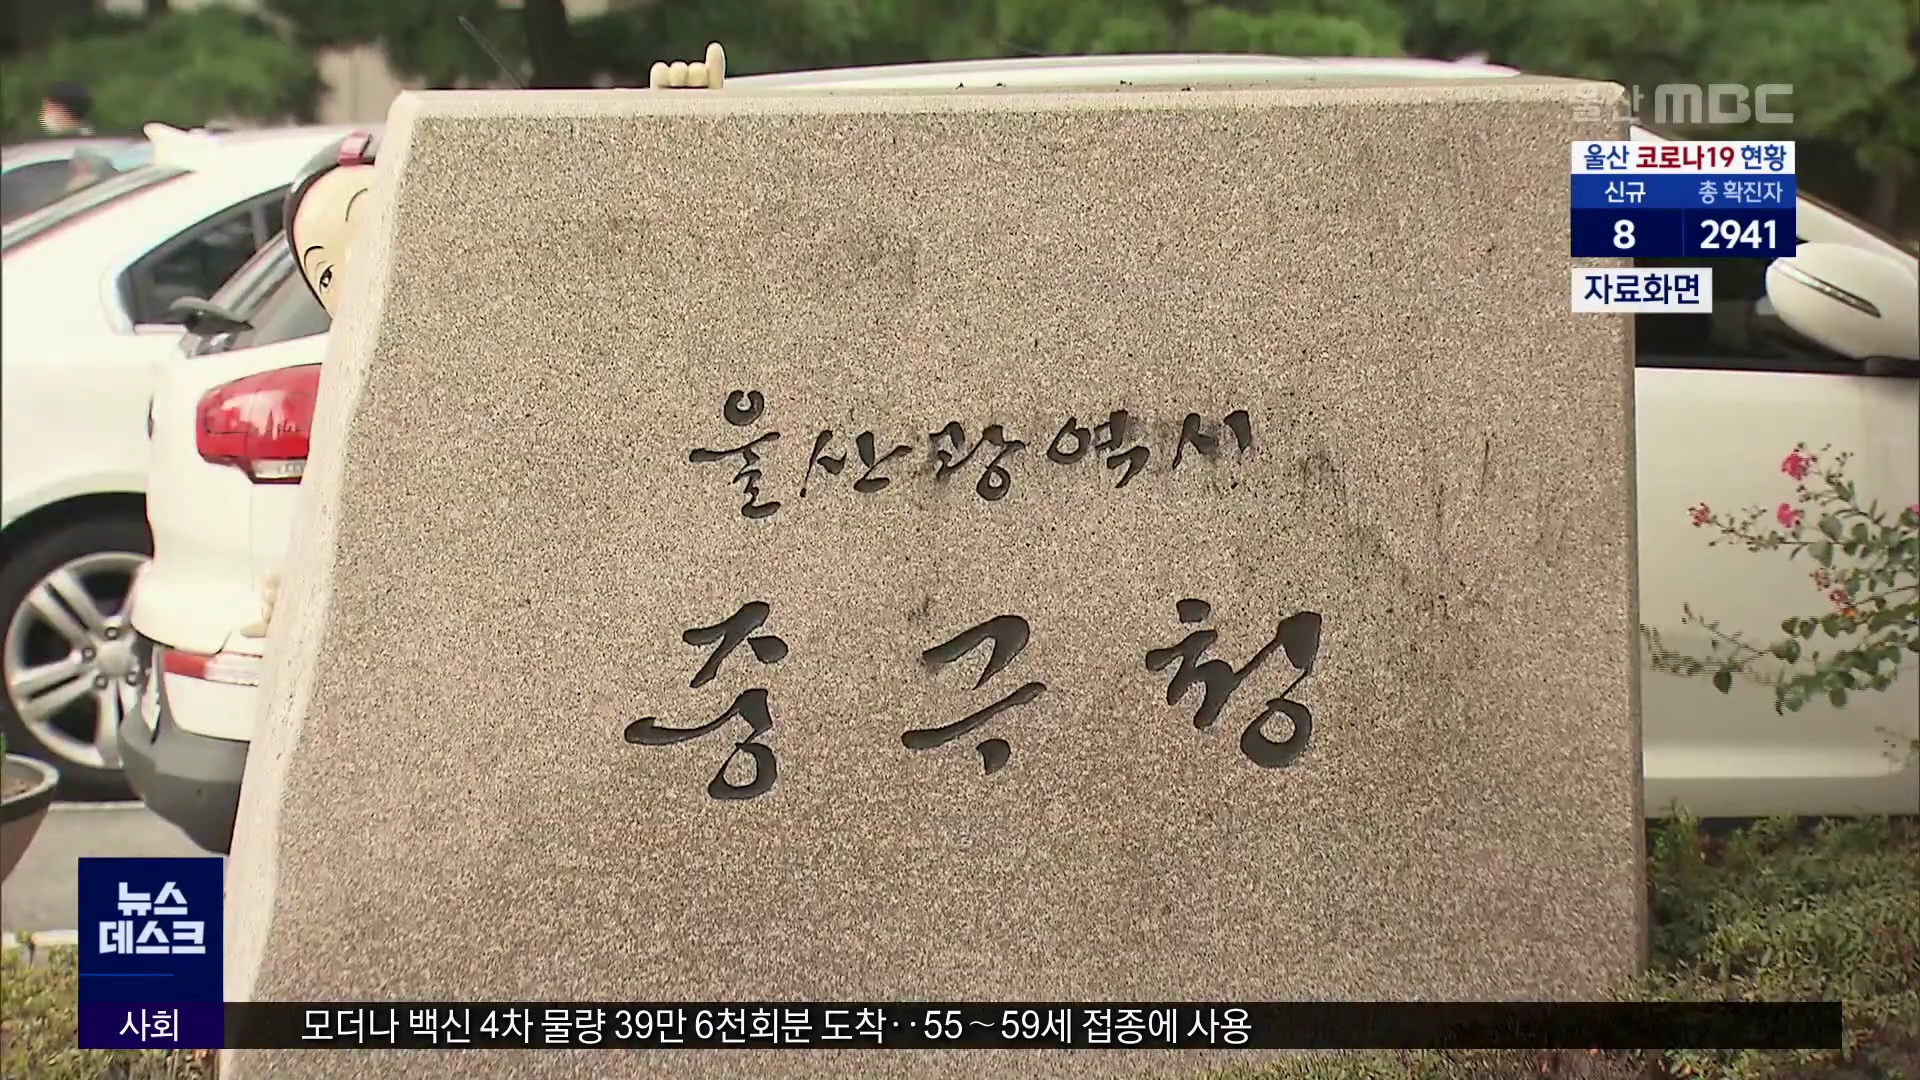 울산 MBC
울산 코로나19 현황
신규 총 확진자
8 2941
자료화면
울산광역시
중구청
뉴스
데스크
사회
모더나 백신 4차 물량 39만 6천회분 도착‥55～59세 접종에 사용